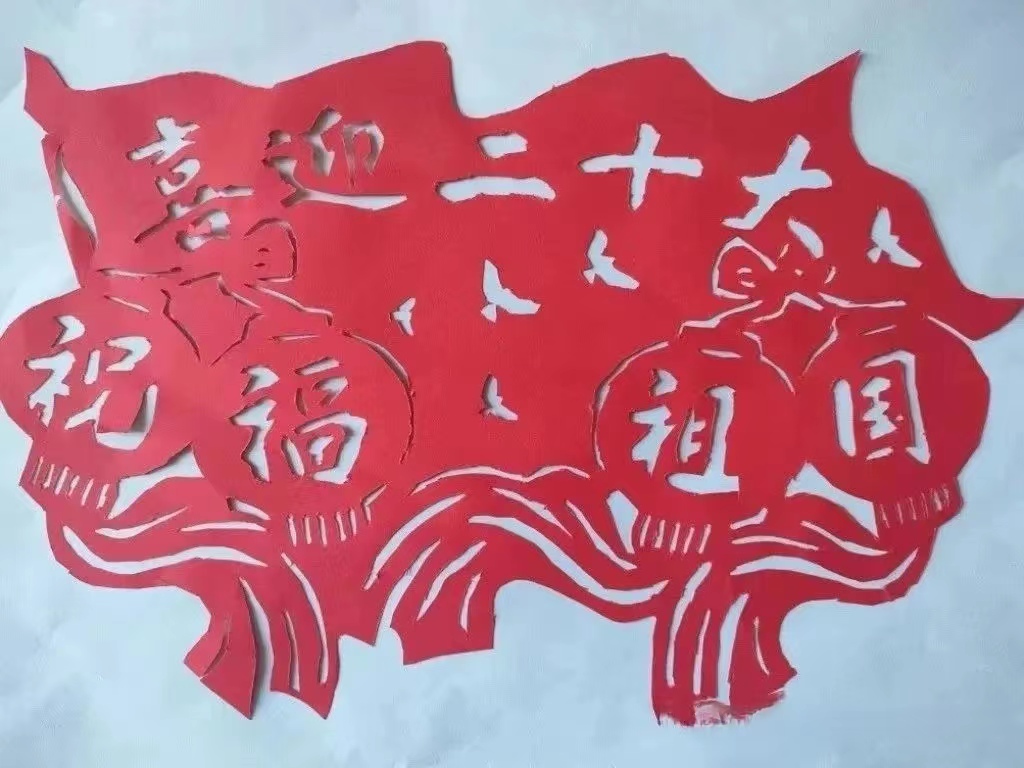 喜迎二十大
祝福祖国